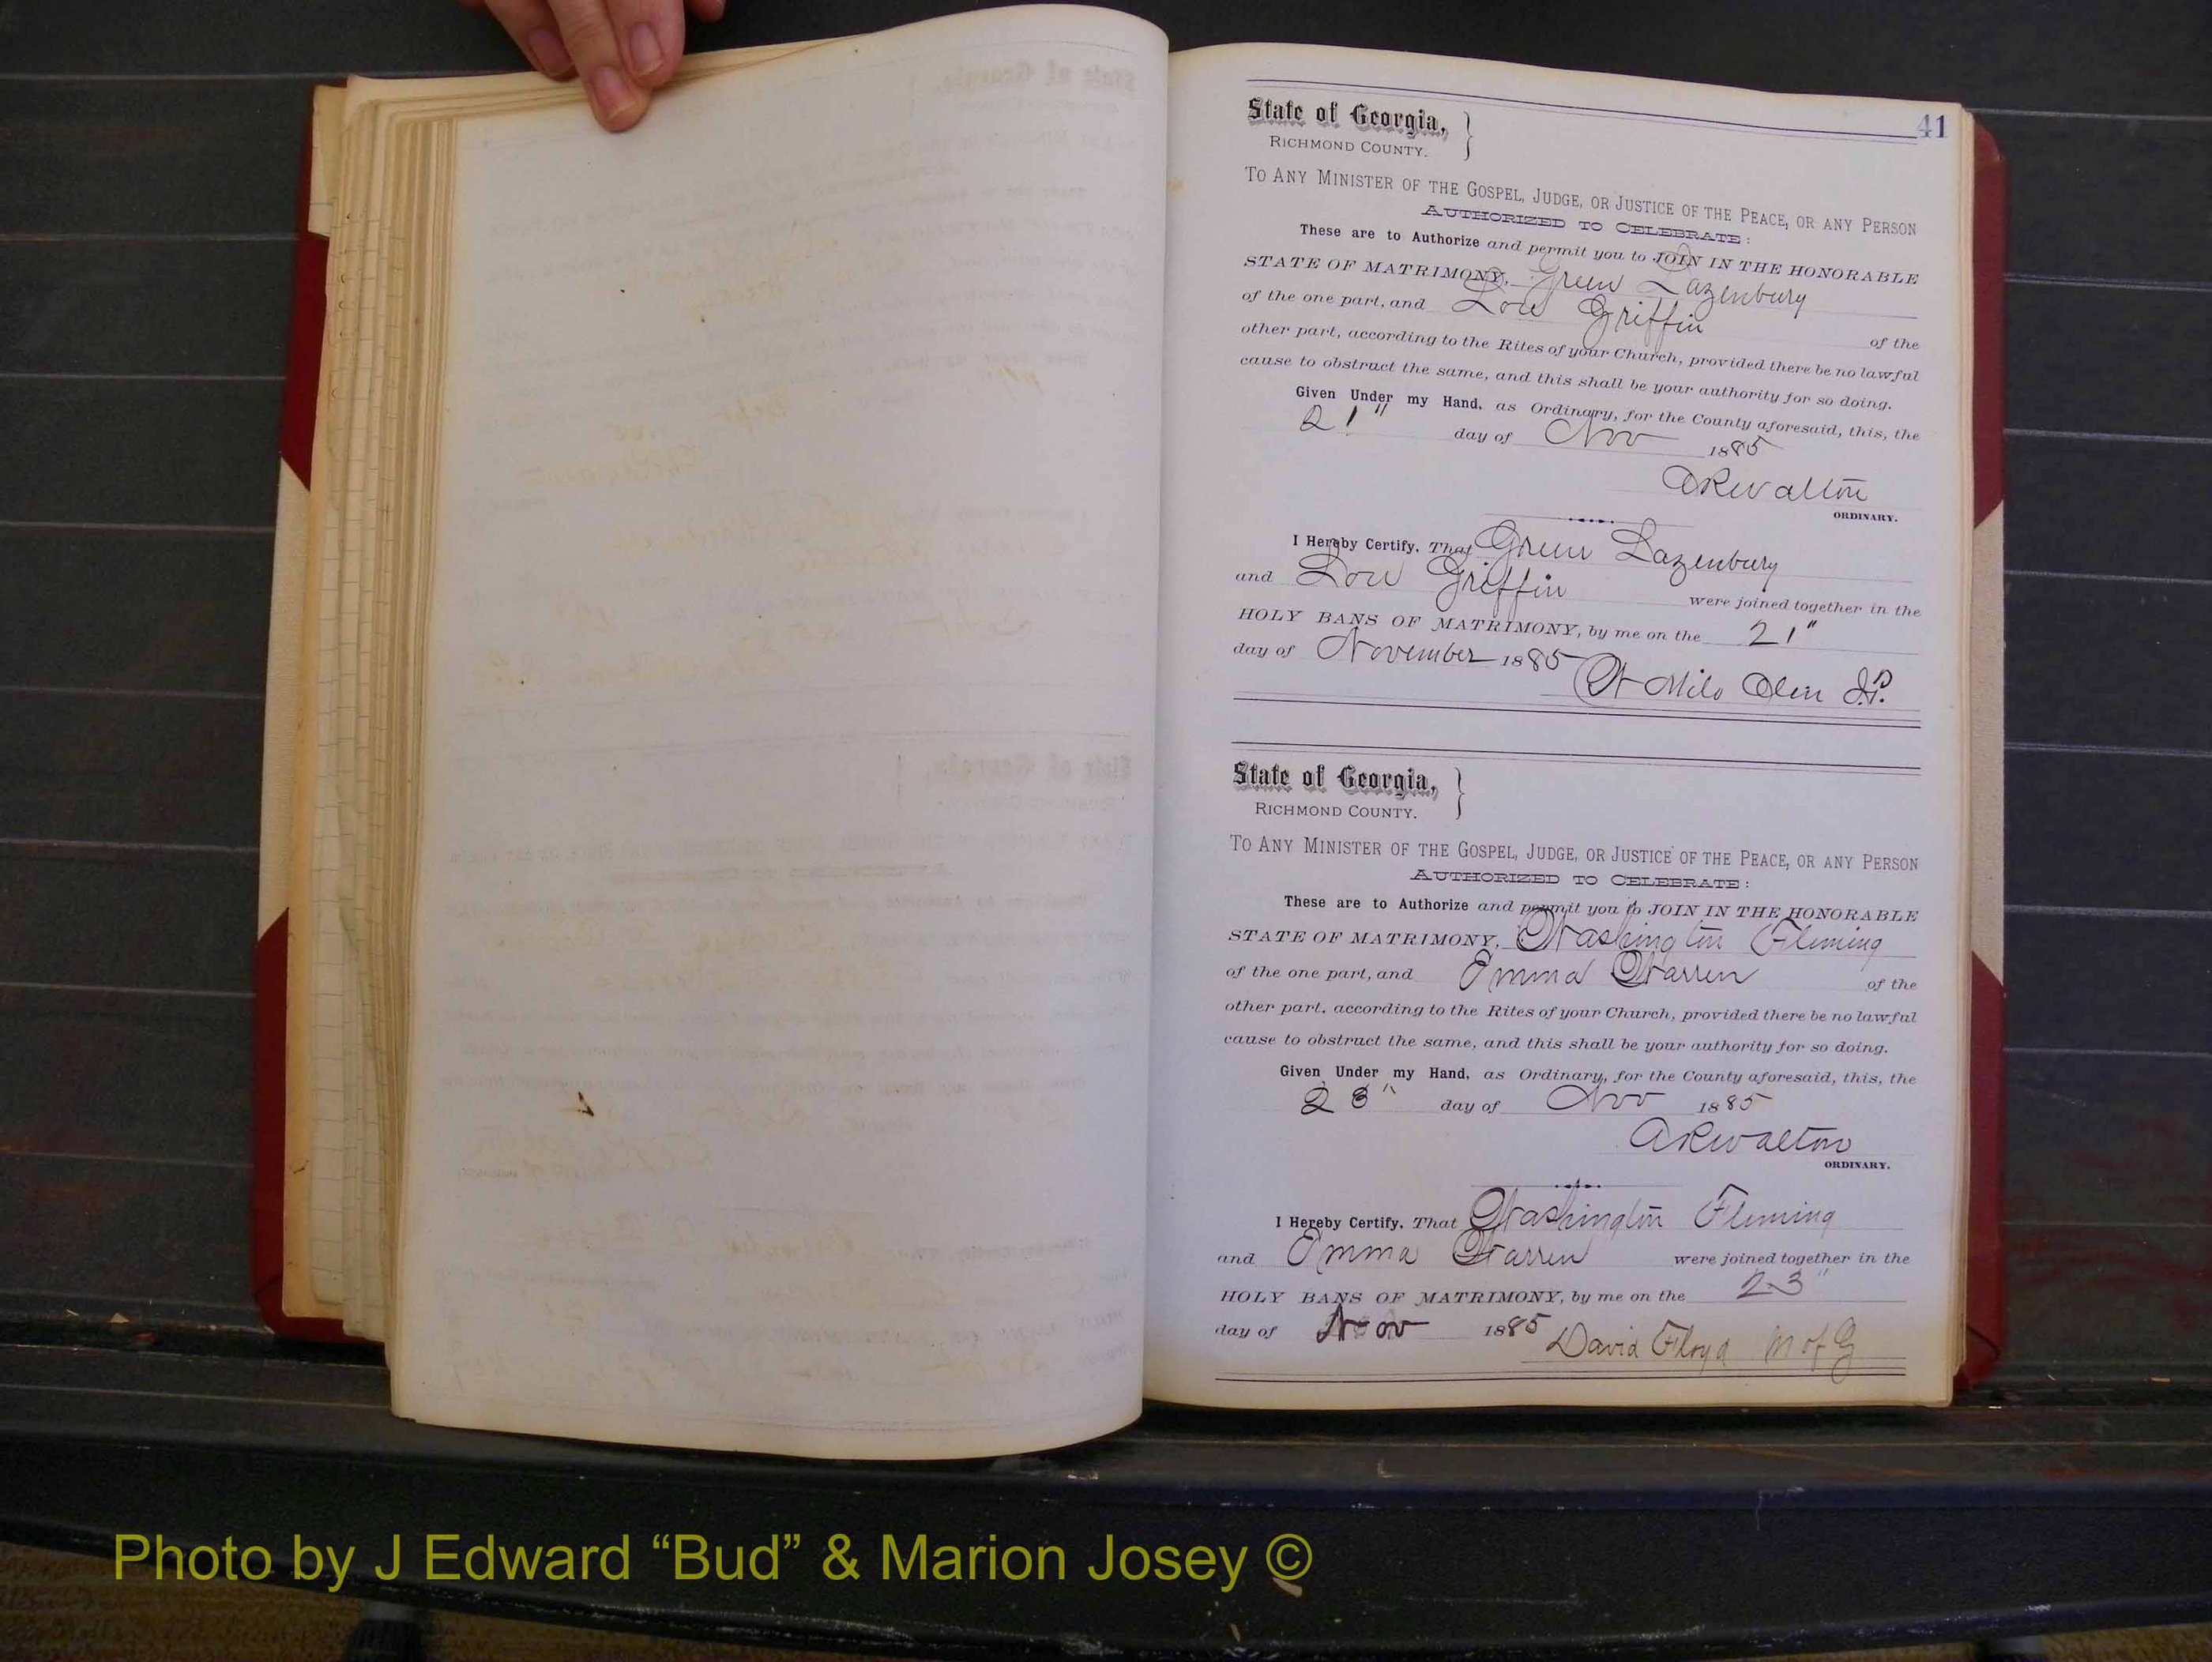 41
State of Georgia,
RICHMOND COUNTY.
TO ANY MINISTER OF THE GOSPEL, JUDGE, OR JUSTICE OF THE PEACE, OR ANY PERSON
AUTHORIZED TO CELEBRATE:
These are to Authorize and permit you to JOIN IN THE HONORABLE
STATE OF MATRIMONY, Green Lazenbury
of the one part, and Lou Griffin
of the
other part, according to the Rites of your Church, provided there be no lawful
cause to obstruct the same, and this shall be your authority for so doing.
Given Under my Hand, as Ordinary, for the County aforesaid, this, the
21" day of Nov 1885
A R Walton
ORDINARY.
I Hereby Certify, That Green Lazenbury
and Lou Griffin were joined together in the
HOLY BANS OF MATRIMONY, by me on the 21"
day of November 1885
W Milo Olin J.P.
State of Georgia,
RICHMOND COUNTY.
TO ANY MINISTER OF THE GOSPEL, JUDGE, OR JUSTICE OF THE PEACE, OR ANY PERSON
AUTHORIZED TO CELEBRATE:
These are to Authorize and permit you to JOIN IN THE HONORABLE
STATE OF MATRIMONY, Washington Fleming
of the one part, and Emma Warren of the
other part, according to the Rites of your Church, provided there be no lawful
cause to obstruct the same, and this shall be your authority for so doing.
Given Under my Hand, as Ordinary, for the County aforesaid, this, the
23" day of Nov 1885
A R Walton
ORDINARY.
I Hereby Certify, That Washington Fleming
and Emma Warren were joined together in the
HOLY BANS OF MATRIMONY, by me on the 23"
day of Nov 1885 David Floyd M of G
Photo by J Edward “Bud” & Marion Josey ©